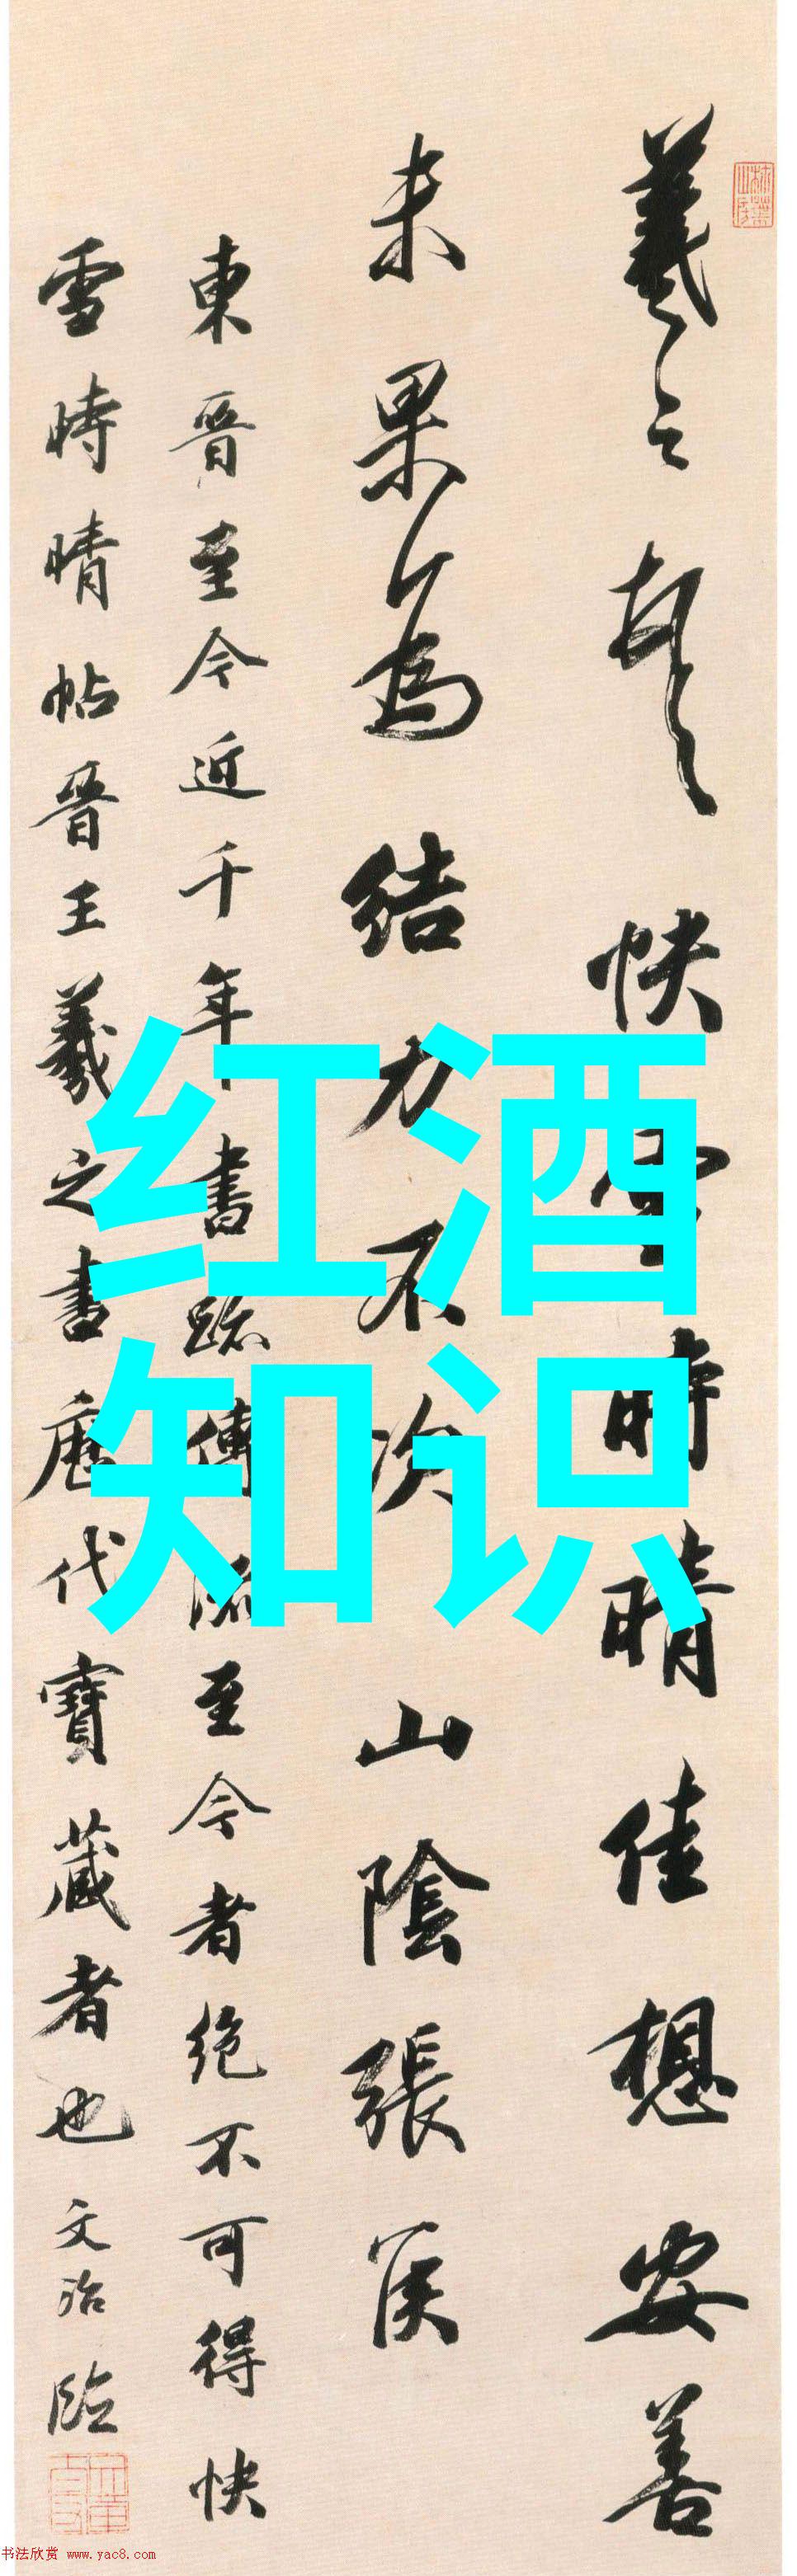 羲之頓首快雪時晴佳想安善
未果為結力不次山陰張侯
東晉至今近千年書跡傳流至今者絕不可得快
雪時晴帖晉王羲之書歷代寶藏者也文治臨
红酒
知识
书法欣赏 www.yac8.com